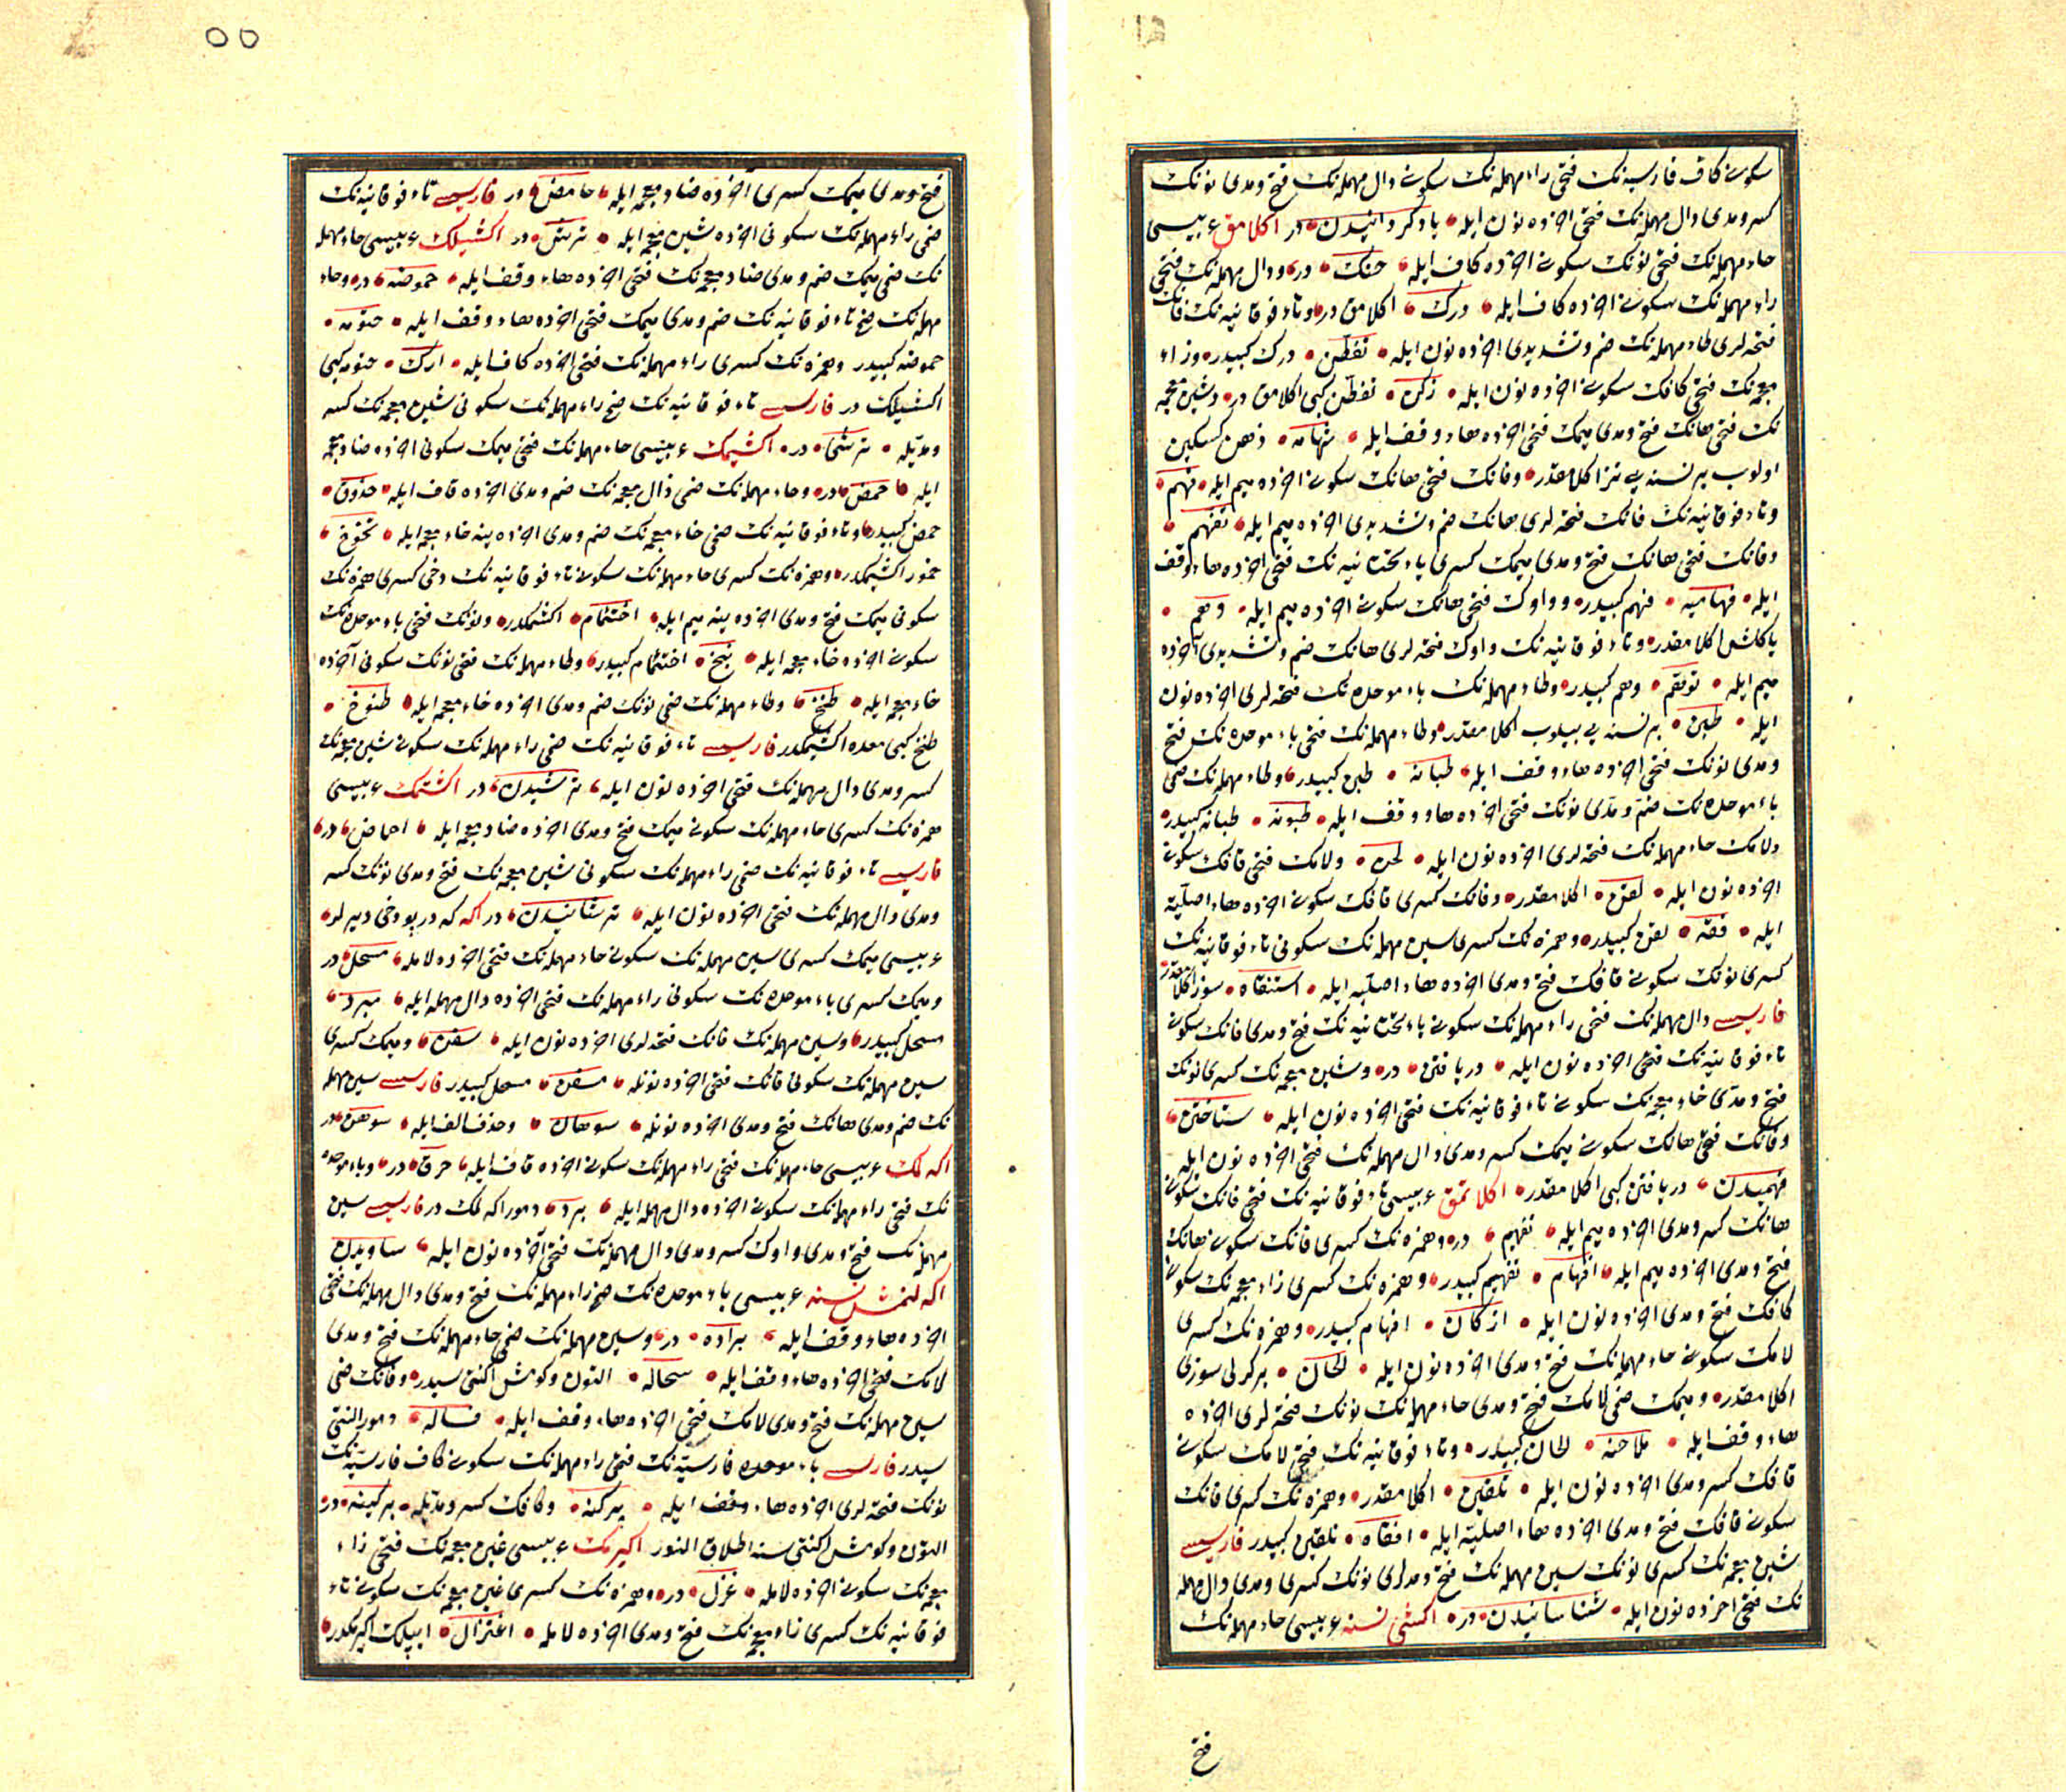 سكونی كاف فارسیه‌نك فتحی راء مهمله‌نك سكونی دال مهمله‌نك فتح و مدی نونك
كسر و مدی دال مهمله‌نك فتحی اخرده نون ایله بادكردانیدن در اكلامق عربیسی
حاء مهمله‌نك فتحی نونك سكونی اخرده كاف ایله حنك در ودال مهمله‌نك فتحی
راء مهمله‌نك سكونی اخرده كاف ایله درك اكلامق در وتاء فوقانیه‌نك فانك
فتحه‌لری طاء مهمله‌نك ضم و تشدیدی اخرده نون ایله تفطّن درك كبیدر وزاء
معجمه‌نك فتحی كافك سكونی اخرده نون ایله زكن تفطّن كبی اكلامق در وشین معجمه
نك فتحی هانك فتح و مدی میمك فتحی اخرده هاء وقف ایله شهامه ذهن كسكین
اولوب بر نسنه‌یی تیز اكلامقدر وفانك فتحی هانك سكونی اخرده میم ایله فهم
وتاء فوقانیه‌نك فانك فتحه‌لری هانك ضم و تشدیدی اخرده میم ایله تفهّم
وفانك فتحی هانك فتح و مدی میمك كسری یاء تحتانیه‌نك فتحی اخرده هاء وقف
ایله فهامیه فهم كبیدر وواوك فتحی هانك سكونی اخرده میم ایله وهم
یاكلش اكلامقدر وتاء فوقانیه‌نك واوك فتحه‌لری هانك ضم و تشدیدی آخرده
میم ایله توهّم وهم كبیدر وطاء مهمله‌نك باء موحده‌نك فتحه‌لری اخرده نون
ایله طبن بر نسنه‌یی بیلوب اكلامقدر وطاء مهمله‌نك فتحی باء موحده‌نك فتح
و مدی نونك فتحی اخرده هاء وقف ایله طبانه طبن كبیدر وطاء مهمله‌نك ضمی
باء موحده‌نك ضم و مدّی نونك فتحی اخرده هاء وقف ایله طبونه طبانه كبیدر
ولامك حاء مهمله‌نك فتحه‌لری اخرده نون ایله لحن ولامك فتحی قافك سكونی
اخرده نون ایله لقن اكلامقدر وفانك كسری قافك سكونی اخرده هاء اصلیّه
ایله فقه لقن كبیدر وهمزه‌نك كسری سین مهمله‌نك سكونی تاء فوقانیه‌نك
كسری نونك سكونی قافك فتح و مدی اخرده هاء اصلیّه ایله استنقاه سوز اكلامقدر
فارسی دال مهمله‌نك فتحی راء مهمله‌نك سكونی یاء تحتانیه‌نك فتح و مدی فانك سكونی
تاء فوقانیه‌نك فتحی اخرده نون ایله دریافتن در وشین معجمه‌نك كسری نونك
فتح و مدّی خاء معجمه‌نك سكونی تاء فوقانیه‌نك فتحی اخرده نون ایله شناختن
وفانك فتحی هانك سكونی میمك كسر و مدی دال مهمله‌نك فتحی اخرده نون ایله
فهمیدن دریافتن كبی اكلامقدر اكلاتمق عربیسی تاء فوقانیه‌نك فتحی فانك سكونی
هانك كسر و مدی اخرده میم ایله تفهیم در وهمزه‌نك كسری فانك سكونی هانك
فتح و مدی اخرده میم ایله افهام تفهیم كبیدر وهمزه‌نك كسری زاء معجمه‌نك سكونی
كافك فتح و مدی اخرده نون ایله ازكان افهام كبیدر وهمزه‌نك كسری
لامك سكونی حاء مهمله‌نك فتح و مدی اخرده نون ایله الحان بركزلی سوزی
اكلامقدر ومیمك ضمی لامك فتح و مدی حاء مهمله‌نك نونك فتحه‌لری اخرده
هاء وقف ایله ملاحنه الحان كبیدر وتاء فوقانیه‌نك فتحی لامك سكونی
قافك كسر و مدی اخرده نون ایله تلقین اكلامقدر وهمزه‌نك كسری فانك
سكونی قافك فتح و مدی اخرده هاء اصلیّه ایله افقاه تلقین كبیدر فارسی
شین معجمه‌نك كسری نونك سین مهمله‌نك فتح و مدلری نونك كسری و مدی دال مهمله
نك فتحی اخرده نون ایله شناسانیدن در اكشی نسنه عربیسی حاء مهمله‌نك
فتح
٥٥
فتح و مدی میمك كسری آخرده ضاد معجمه ایله حامض در فارسی تاء فوقانیه‌نك
ضمی راء مهمله‌نك سكونی اخرده شین معجمه ایله ترش در اكشیلك عربیسی حاء مهمله
نك ضمی میمك ضم و مدی ضاد معجمه‌نك فتحی اخرده هاء وقف ایله حموضه در وحاء
مهمله‌نك فتح تاء فوقانیه‌نك ضم و مدی میمك فتحی اخرده هاء وقف ایله حتومه
حموضه كبیدر وهمزه‌نك كسری راء مهمله‌نك فتحی اخرده كاف ایله ارك حتومه كبی
اكشیلك در فارسی تاء فوقانیه‌نك ضم راء مهمله‌نك سكونی شین معجمه‌نك كسر
و مدّیله ترشی در اكشیمك عربیسی حاء مهمله‌نك فتحی میمك سكونی اخرده ضاد معجمه
ایله حمض در وحاء مهمله‌نك ضمی ذال معجمه‌نك ضم و مدی اخرده قاف ایله حذوق
حمض كبیدر وتاء فوقانیه‌نك ضمی خاء معجمه‌نك ضم و مدی اخرده ینه خاء معجمه ایله تخوخ
خمور اكشیمكدر وهمزه‌نك كسری حاء مهمله‌نك سكونی تاء فوقانیه‌نك دخی كسری همزه‌نك
سكونی میمك فتح و مدی اخرده ینه میم ایله اختمام اكشیمكدر ونونك فتحی باء موحده‌نك
سكونی اخرده خاء معجمه ایله نبخ اختمام كبیدر وطاء مهمله‌نك فتحی نونك سكونی آخرده
خاء معجمه ایله طنخ وطاء مهمله‌نك ضمی نونك ضم و مدی اخرده خاء معجمه ایله طنوخ
طنخ كبی معده اكشیمكدر فارسی تاء فوقانیه‌نك ضمی راء مهمله‌نك سكونی شین معجمه‌نك
كسر و مدی دال مهمله‌نك فتحی اخرده نون ایله ترشیدن در اكشتمك عربیسی
همزه‌نك كسری حاء مهمله‌نك سكونی میمك فتح و مدی اخرده ضاد معجمه ایله احماض در
فارسی تاء فوقانیه‌نك ضمی راء مهمله‌نك سكونی شین معجمه‌نك فتح و مدی نونك كسر
و مدی دال مهمله‌نك فتحی اخرده نون ایله ترشانیدن در اكه كه دربودخی دیرلر
عربیسی میمك كسری سین مهمله‌نك سكونی حاء مهمله‌نك فتحی اخرده لامله مسحل در
ومیمك كسری باء موحده‌نك سكونی راء مهمله‌نك فتحی اخرده دال مهمله ایله مبرد
مسحل كبیدر وسین مهمله‌نك فانك فتحه‌لری اخرده نون ایله سفن ومیمك كسری
سین مهمله‌نك سكونی فانك فتحی اخرده نونله مسفن مسحل كبیدر فارسی سین مهمله
نك ضم و مدی هانك فتح و مدی اخرده نونله سوهان وحذف الف ایله سوهن در
اكه لمك عربیسی حاء مهمله‌نك فتحی راء مهمله‌نك سكونی اخرده قاف ایله حرق در وباء موحده
نك فتحی راء مهمله‌نك سكونی اخرده دال مهمله ایله برد دمور اكه لمك در فارسی سین
مهمله‌نك فتح و مدی واوك كسر و مدی دال مهمله‌نك فتحی آخرده نون ایله ساویدن
اكه لنمش نسنه عربیسی باء موحده‌نك ضم راء مهمله‌نك فتح و مدی دال مهمله‌نك فتحی
اخرده هاء وقف ایله براده در وسین مهمله‌نك ضمی حاء مهمله‌نك فتح و مدی
لامك فتحی اخرده هاء وقف ایله سحاله التون وكومش اكنتیسیدر وفانك ضمی
سین مهمله‌نك فتح و مدی لامك فتحی اخرده هاء وقف ایله فساله دمور اكنتی
سیدر فارسی باء موحده فارسیّه‌نك فتحی راء مهمله‌نك سكونی كاف فارسیّه‌نك
نونك فتحه‌لری اخرده هاء وقف ایله پركنه وكافك كسر و مدّیله پركینه در
التون وكومش اكنتیسنه اطلاق النور اكیرمك عربیسی غین معجمه‌نك فتحی زاء
معجمه‌نك سكونی اخرده لامله غزل در وهمزه‌نك كسری غین معجمه‌نك سكونی تاء
فوقانیه‌نك كسری زاء معجمه‌نك فتح و مدی اخرده لامله اغتزال ایپلك اكیرمكدر